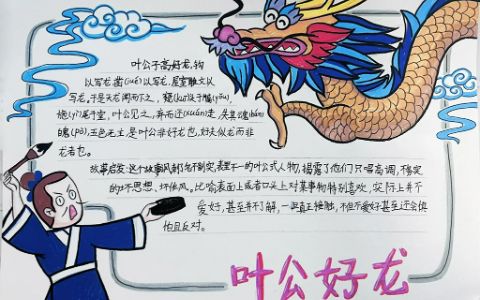 叶公子高好龙,钩
以写龙,凿以写龙,屋室雕文以
写龙,于是天龙闻而下之,窥(kuī)头于牖(yǒu),
施(yì)尾于堂,叶公见之,弃而还(xuán)走,失其魂(hún)
魄(pò),五色无主,是叶公非好龙也,好夫似龙而非
龙者也。
故事启发:这个故事讽刺了名不副实,表里不一的叶公式人物,揭露了他们只唱高调,不务实
的坏思想、坏作风。比喻表面上或者口头上对某事物特别喜欢,实际上并不
爱好,甚至并不了解,一旦真正接触,不但不爱好甚至还会惧
怕且反对.
叶公好龙